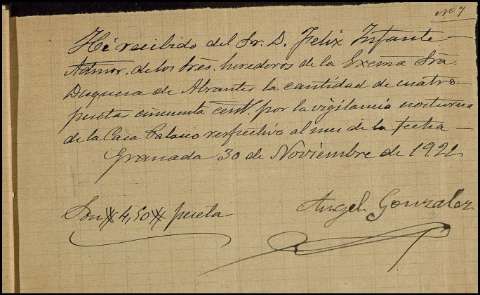 Nº 7
He recibido del Sr. D. Felix Infante
Admor. de los tres herederos de la Excma Sra
Duquesa de Abrantes la cantidad de cuatro
peseta cincuenta cent. por la vigilancia nocturna
de la Casa Palacio respectivo al mes de la fecha
Granada 30 de Noviembre de 1922
Son # 4,50 # peseta
Angel Gonzalez